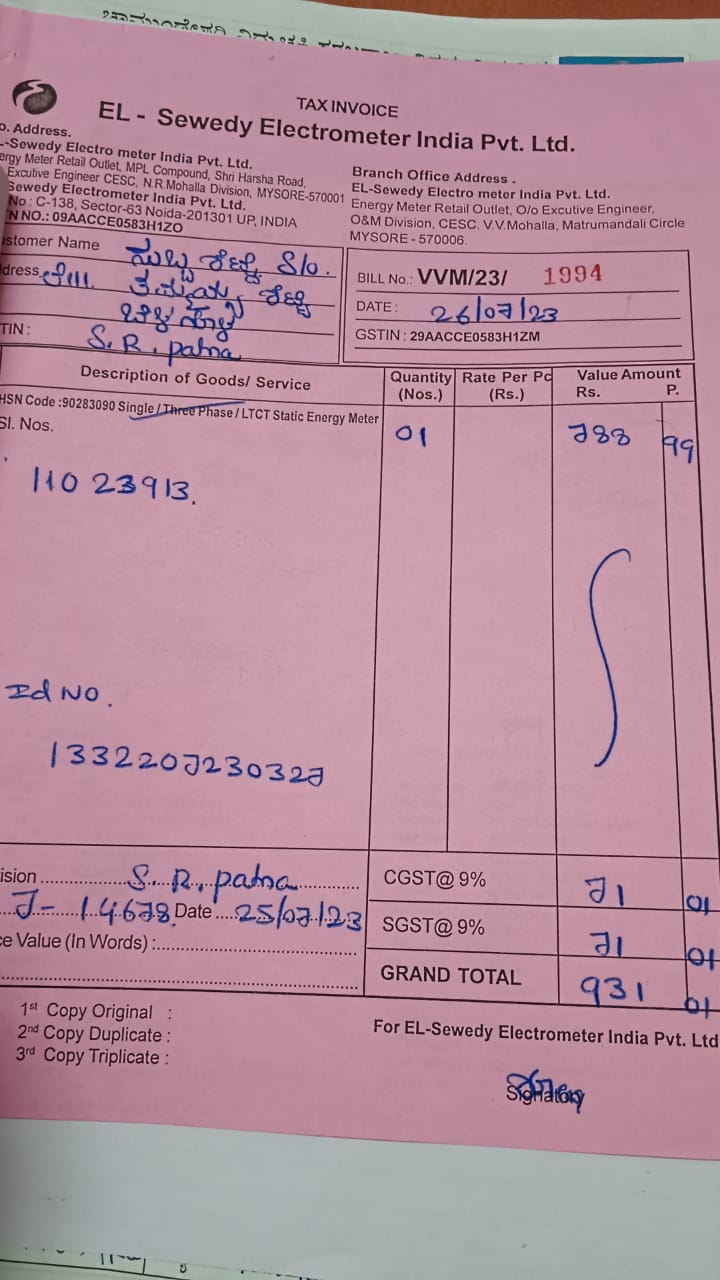 TAX INVOICE
EL - Sewedy Electrometer India Pvt. Ltd.
o. Address.
-Sewedy Electro meter India Pvt. Ltd.
ergy Meter Retail Outlet, MPL Compound, Shri Harsha Road,
Excutive Engineer CESC, N.R.Mohalla Division, MYSORE-570001
Sewedy Electrometer India Pvt. Ltd.
No : C-138, Sector-63 Noida-201301 UP, INDIA
N NO.: 09AACCE0583H1ZO
Branch Office Address .
EL-Sewedy Electro meter India Pvt. Ltd.
Energy Meter Retail Outlet, O/o Excutive Engineer,
O&M Division, CESC. V.V.Mohalla, Matrumandali Circle
MYSORE - 570006.
stomer Name ಸುಬ್ಬ ಶೆಟ್ಟಿ S/o.
dress ಶೆಟ್ಟಿ
TIN : S. R. patna
BILL No.: VVM/23/ 1994
DATE : 26/07/23
GSTIN : 29AACCE0583H1ZM
Description of Goods/ Service Quantity (Nos.) Rate Per Pc (Rs.) Value Amount Rs. P.
HSN Code :90283090 Single / Three Phase / LTCT Static Energy Meter
Sl. Nos. 01 788 99
110 23913.
Id No.
1332207230327
ision S. R. patna CGST@ 9% 71 01
J- 14678 Date 25/07/23 SGST@ 9% 71 01
ce Value (In Words) :
GRAND TOTAL 931 01
1st Copy Original :
2nd Copy Duplicate :
3rd Copy Triplicate :
For EL-Sewedy Electrometer India Pvt. Ltd
Signatory